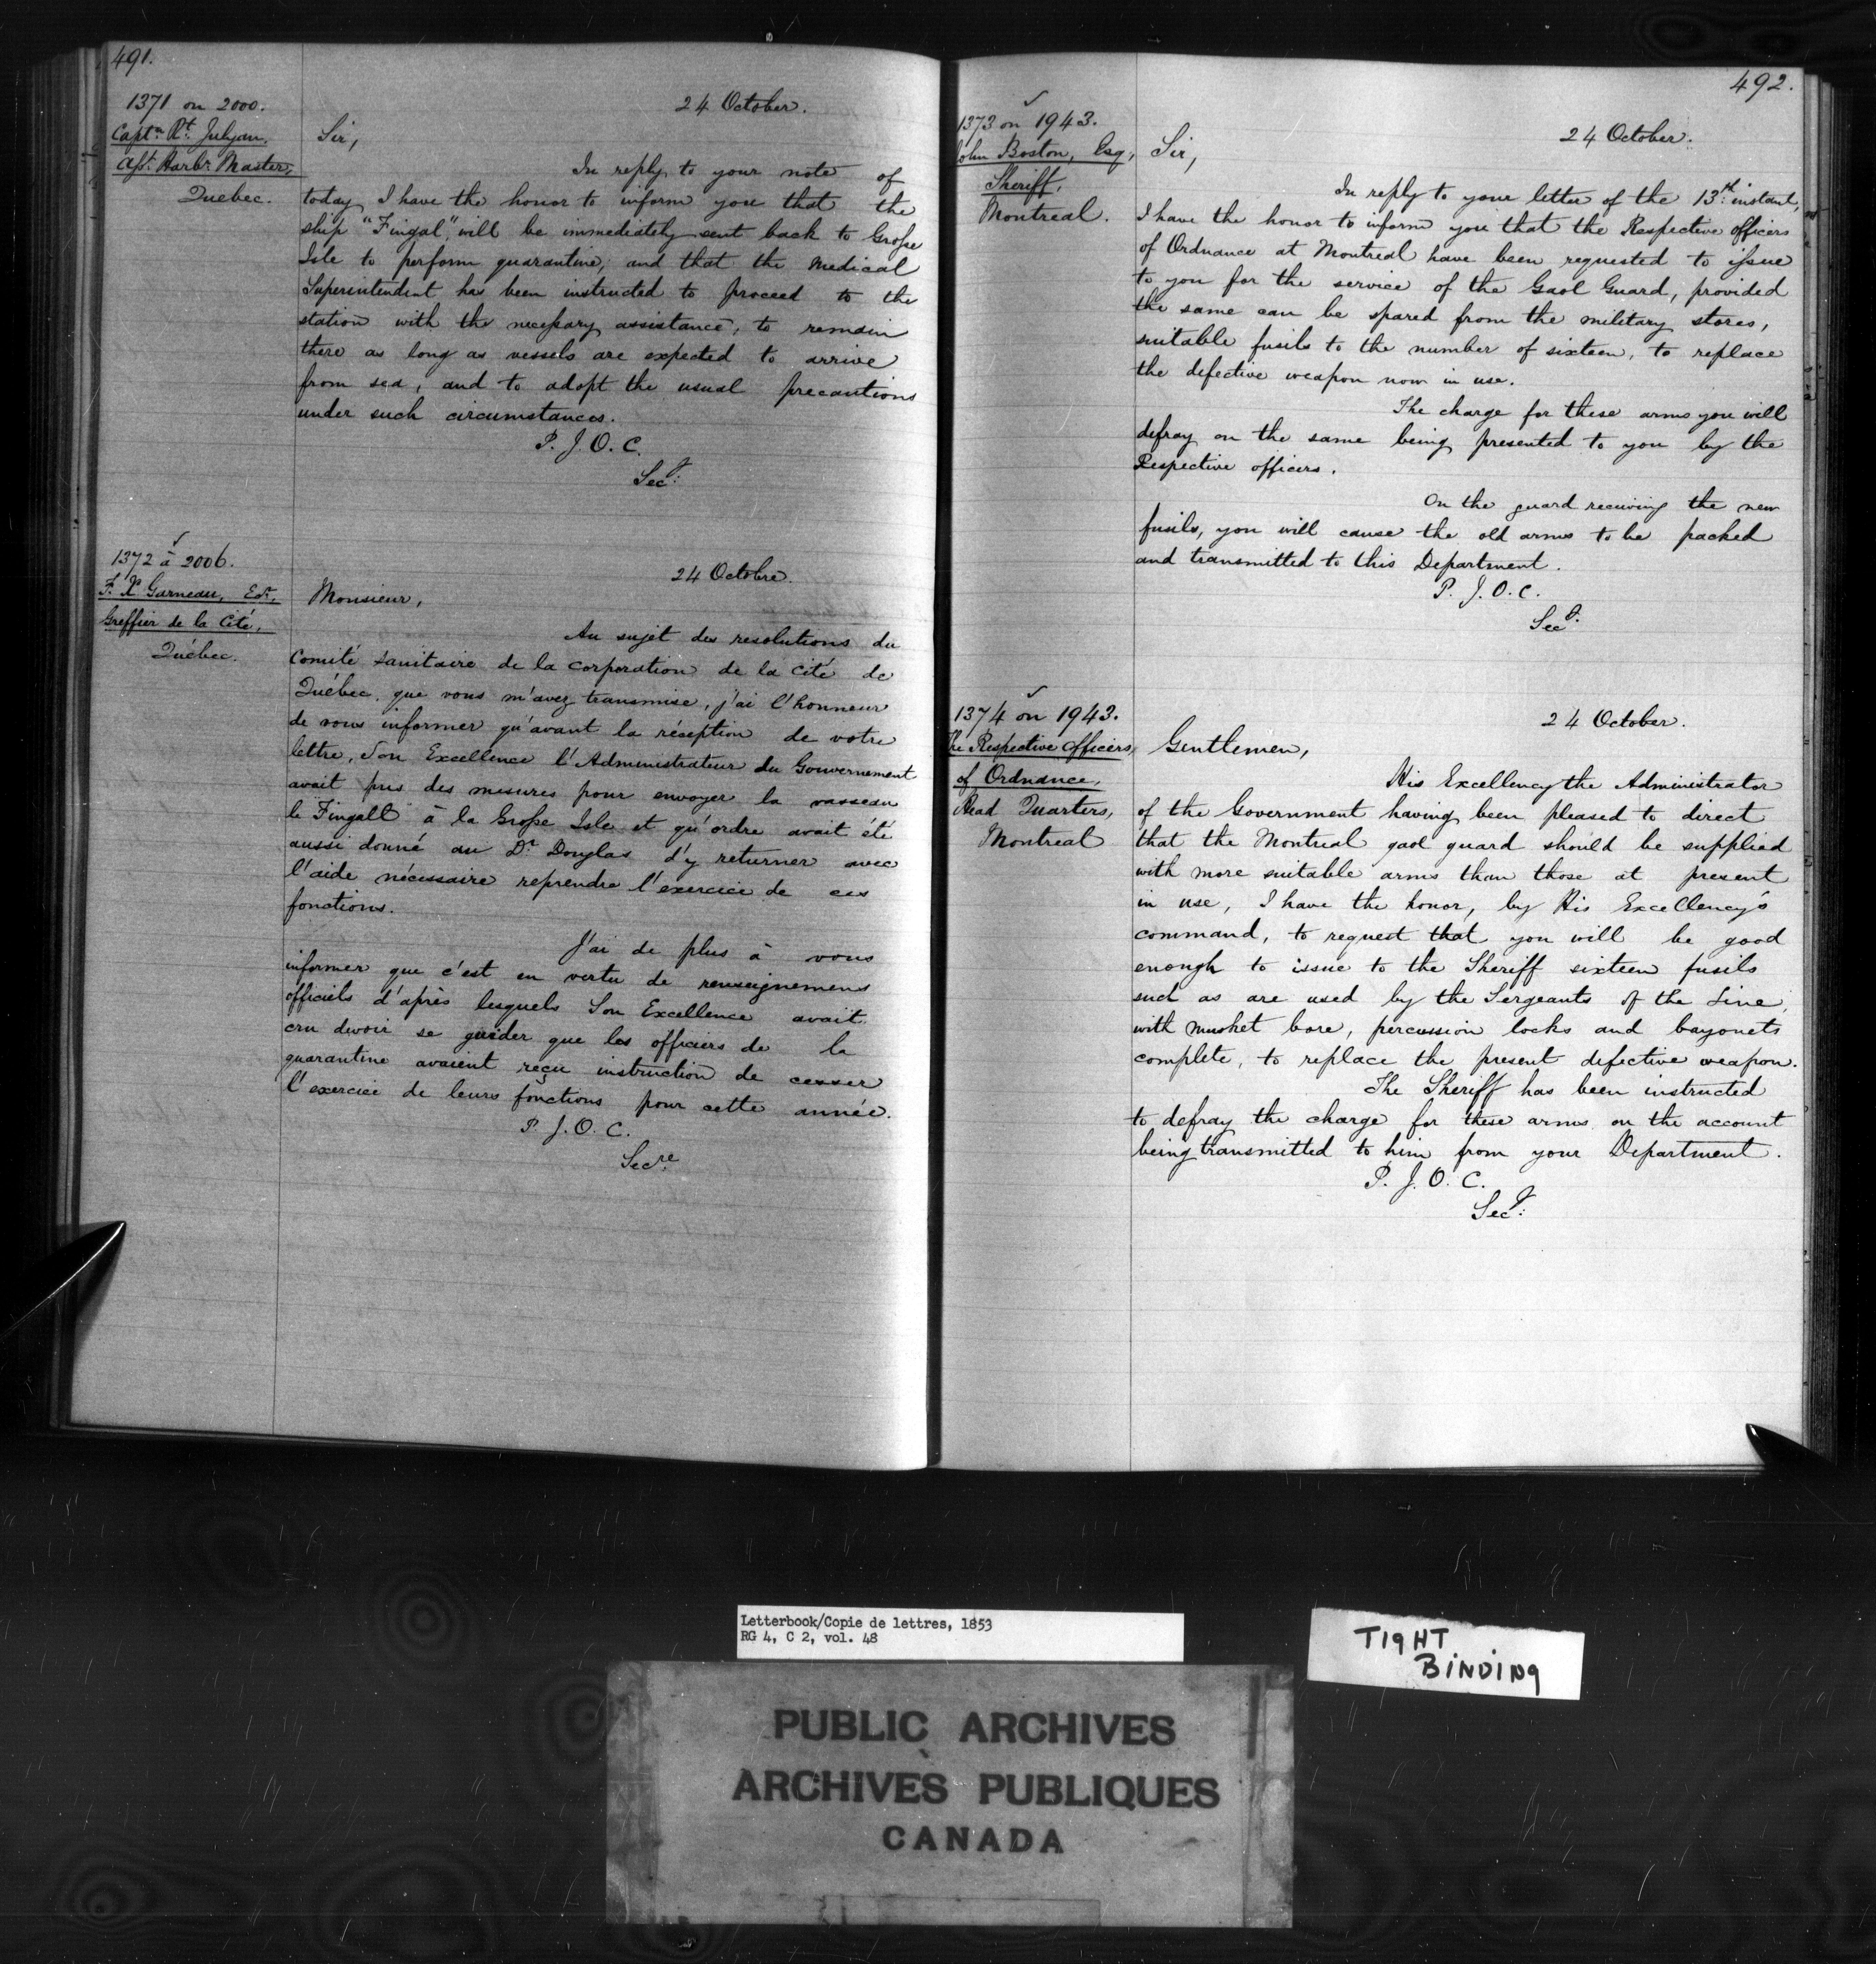 491.
1371 on 2000.
Captn Rt. Julyan.
Asst. Harbr. Master,
Quebec.
24 October.
Sir,
In reply to your note of
today I have the honor to inform you that the
ship "Fingal", will be immediately sent back to Grosse
Isle to perform quarantine, and that the Medical
Superintendent has been instructed to proceed to the
station with the necessary assistance, to remain
there as long as vessels are expected to arrive
from sea, and to adopt the usual precautions
under such circumstances.
P. J. O. C.
Secy.
1372 à 2006.
F. X. Garneau, Ecr.
Greffier de la Cité,
Québec.
24 Octobre.
Monsieur,
Au sujet des resolutions du
Comité sanitaire de la corporation de la cité de
Québec que vous m'avez transmise, j'ai l'honneur
de vous informer qu'avant la réception de votre
lettre, Son Excellence l'Administrateur du Gouvernement
avait pris des mesures pour envoyer la vasseau
le "Fingall" à la Grosse Isle et qu'ordre avait été
aussi donné au Dr. Douglas d'y returner avec
l'aide nécessaire reprendre l'exercice de ces
fonctions.
J'ai de plus à vous
informer que c'est en vertu de renseignemens
officiels d'après lesquels Son Excellence avait
cru devoir se guider que les officiers de la
quarantine avaient reçu instruction de cesser
l'exercice de leurs fonctions pour cette année.
P. J. O. C.
Secre.
492.
1373 on 1943.
John Boston, Esq,
Sheriff,
Montreal.
24 October.
Sir,
In reply to your letter of the 13th. instant,
I have the honor to inform you that the Respective officers
of Ordnance at Montreal have been requested to issue
to you for the service of the Gaol Guard, provided
the same can be spared from the military stores,
suitable fusils to the number of sixteen, to replace
the defective weapon now in use.
The charge for these arms you will
defray on the same being presented to you by the
Respective officers.
On the guard receiving the new
fusils, you will cause the old arms to be packed
and transmitted to this Department.
P. J. O. C.
Secy.
1374 on 1943.
The Respective Officers,
of Ordnance,
Head Quarters,
Montreal
24 October.
Gentlemen,
His Excellency the Administrator
of the Government having been pleased to direct
that the Montreal gaol guard should be supplied
with more suitable arms than those at present
in use, I have the honor, by His Excellency's
command, to request that you will be good
enough to issue to the Sheriff sixteen fusils
such as are used by the Sergeants of the Line
with musket bore, percussion locks and bayonets
complete, to replace the present defective weapon.
The Sheriff has been instructed
to defray the charge for these arms on the account
being transmitted to him from your Department.
P. J. O. C.
Secy.
Letterbook/Copie de lettres, 1853
RG 4, C 2, vol. 48
TIGHT
BINDING
PUBLIC ARCHIVES
ARCHIVES PUBLIQUES
CANADA